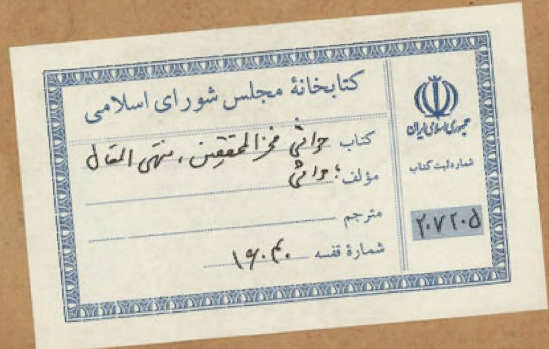 کتابخانهٔ مجلس شورای اسلامی
کتاب حواشی فخر المحققین ، منتهی المقال
مؤلف : حواشی
مترجم
شمارهٔ قفسه ۱۶۰۴۰
جمهوری اسلامی ایران
شماره ثبت کتاب
۲۰۷۲۰۵